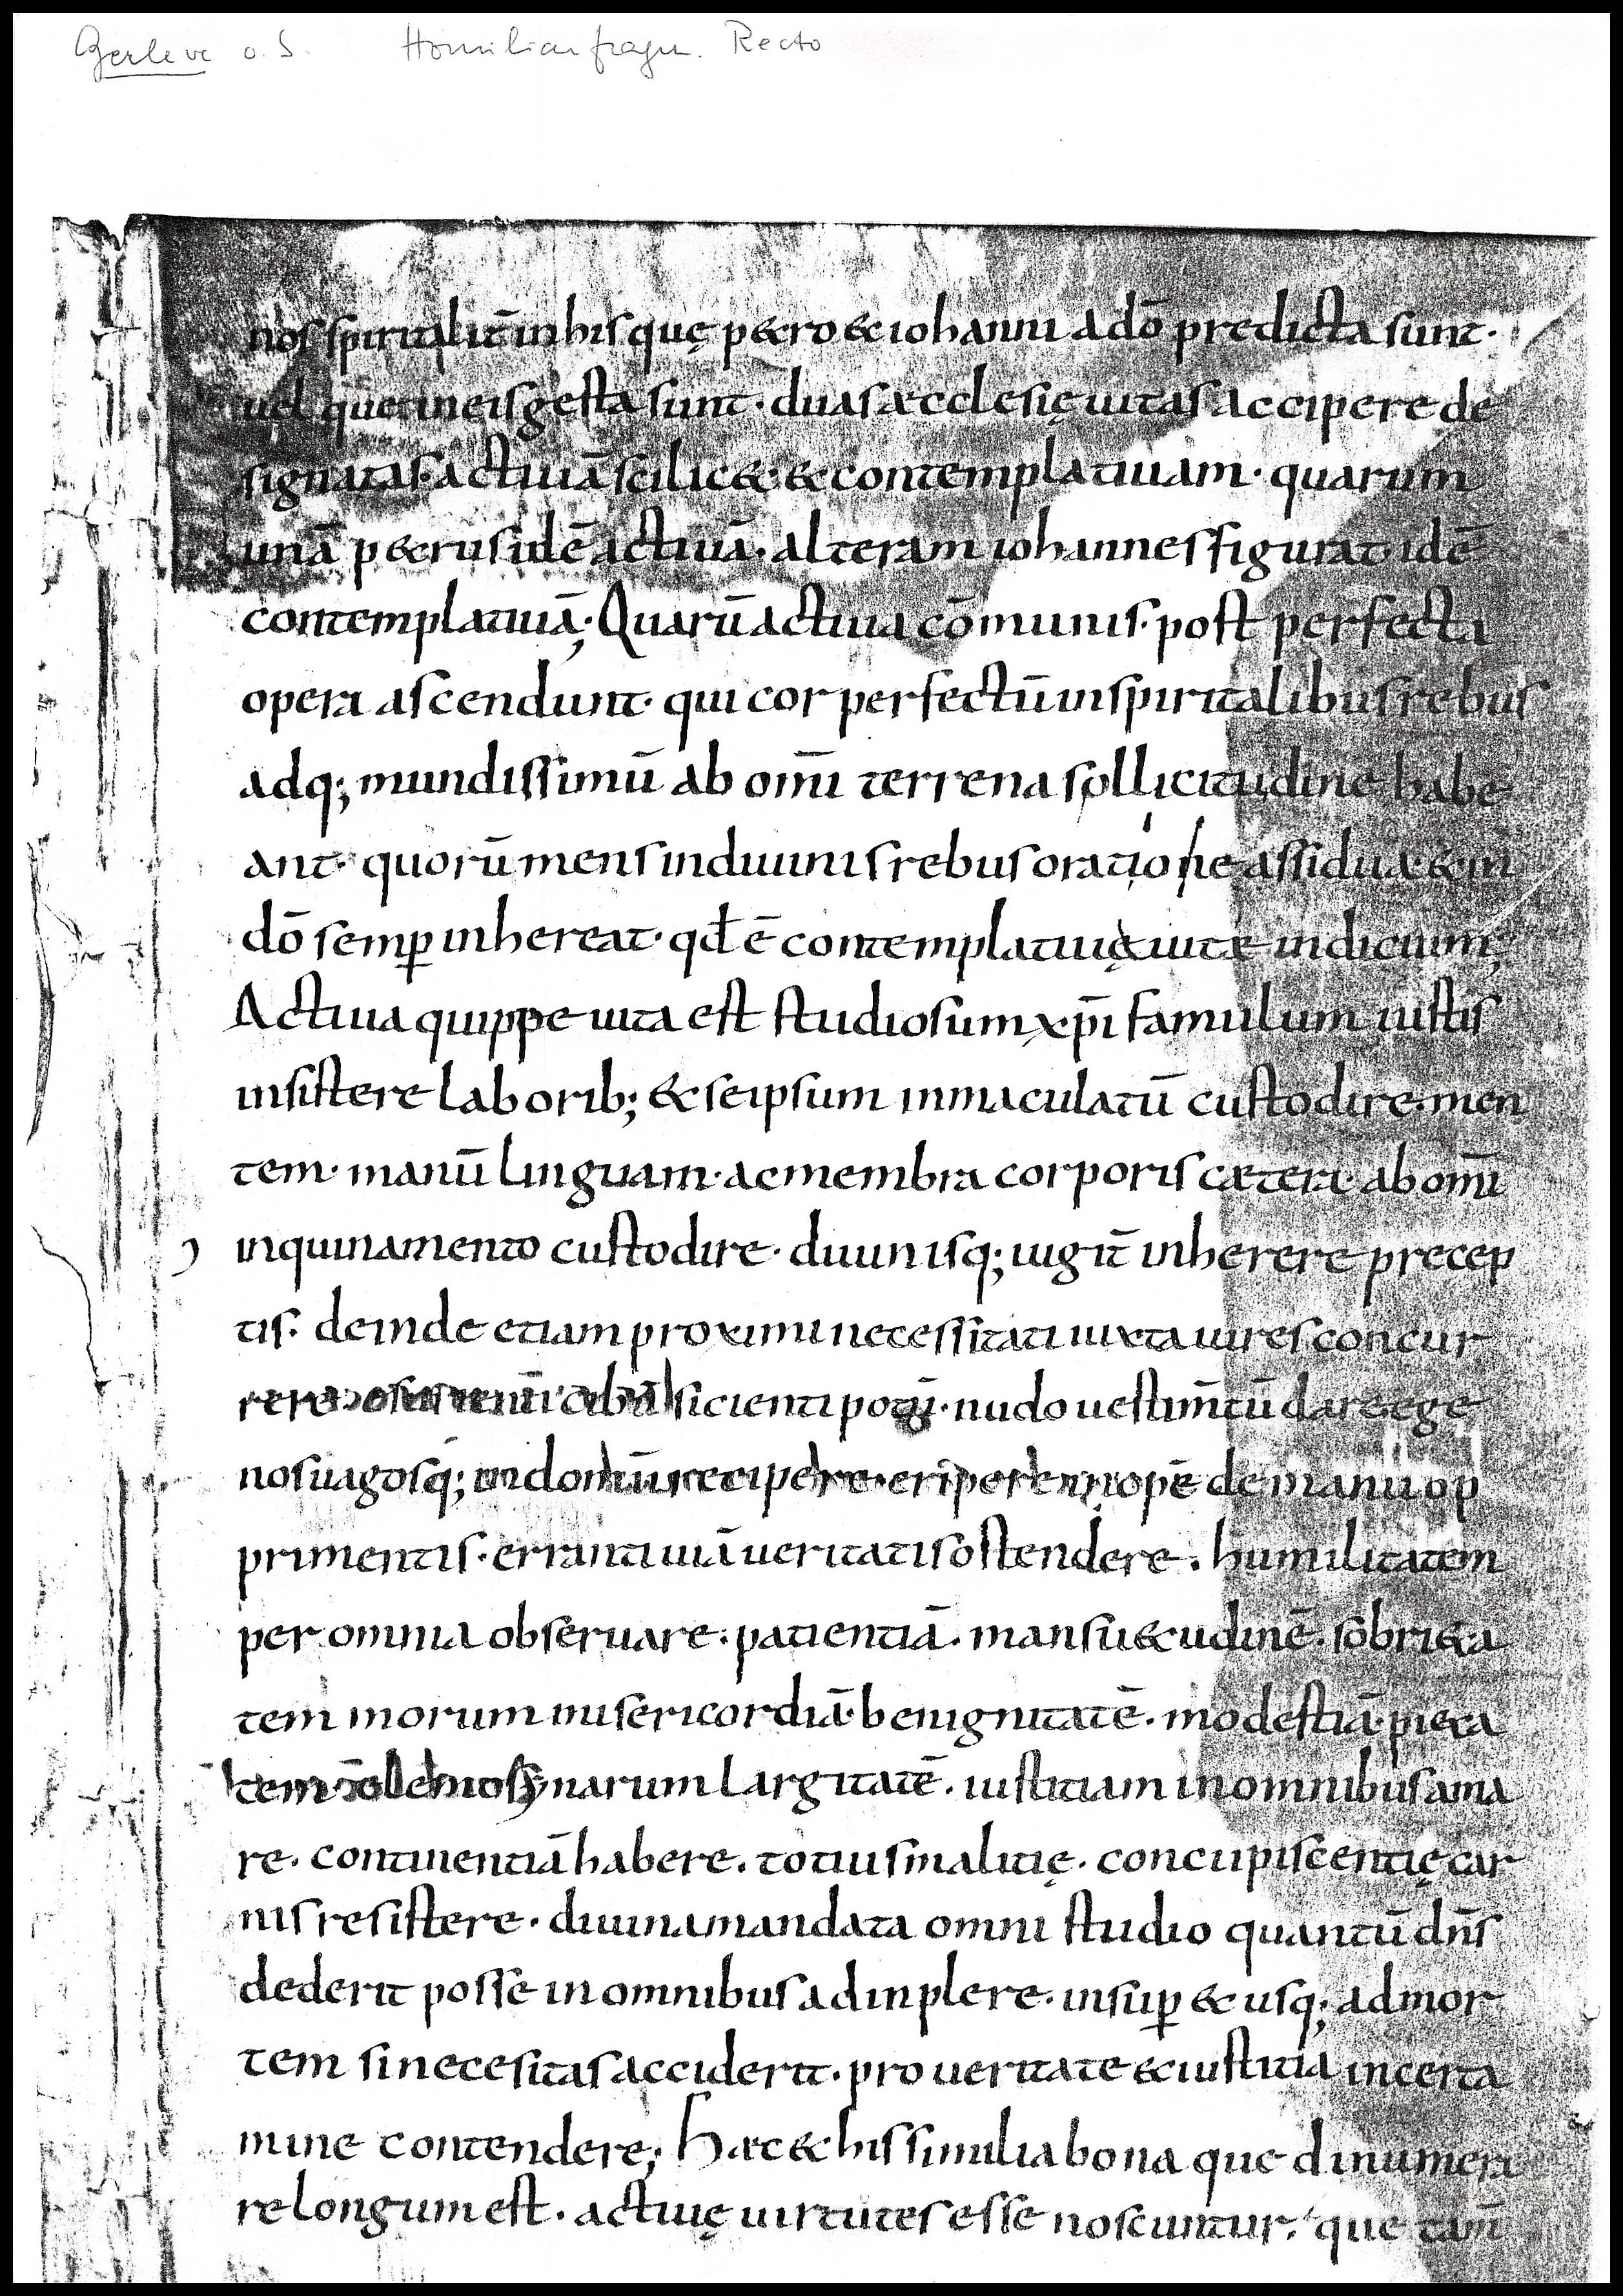 Gerleve o. S. Homiliar fragm. Recto
nos spiritalit̄ in his quę petro & iohanni a dō predicta sunt·
uel que in eis gesta sunt · duas æcclesię uitas accipere de
signatas· actiuā scilic& · & contemplatiuam · quarum
unā p&rus idē actiuā · alteram iohannes figurat· idē
contemplatiuā; Quarū actiua cōmunis· post perfecta
opera ascendunt· qui cor perfectū in spiritalibus rebus
adq; mundissimū ab om̄i terrena sollicitudine habe
ant· quorū mens in diuinis rebus oratione assidua & in
dō semꝑ inhereat· qđ ē contemplatiuę uitæ indicium;
Actiua quippe uita est studiosum xp̄i famulum iustis
insistere laborib; & seipsum inmaculatū custodire· men
tem· manū linguam· ac membra corporis cætera ab om̄i
inquinamento custodire · diuinisq; iugit̄ inherere precep
tis· deinde etiam proximi necessitati iuxta uires concur
rere cibū sicienti potū · nudo uestim̄tū dare ege
nos uagosq; in domū recipere· eripere inopē de manu op
primentis· erranti uiā ueritatis ostendere . humilitatem
per omnia obseruare· patientiā . mansu&udinē . sobri&a
tem morum misericordiā· benignitatē . modestiā· pi&a
tem elemosynarum largitatē . iustitiam in omnibus ama
re . continentiā habere . totius malitię . concupiscentię car
nis resistere · diuina mandata omni studio quantū dn̄s
dederit posse in omnibus adinplere· insuꝑ & usq; ad mor
tem si necesitas acciderit . pro ueritate & iustitia in certa
mine contendere; Hæc & his similia bona que dinumera
re longum est . actiuę uirtutes esse noscuntur. que tam̄